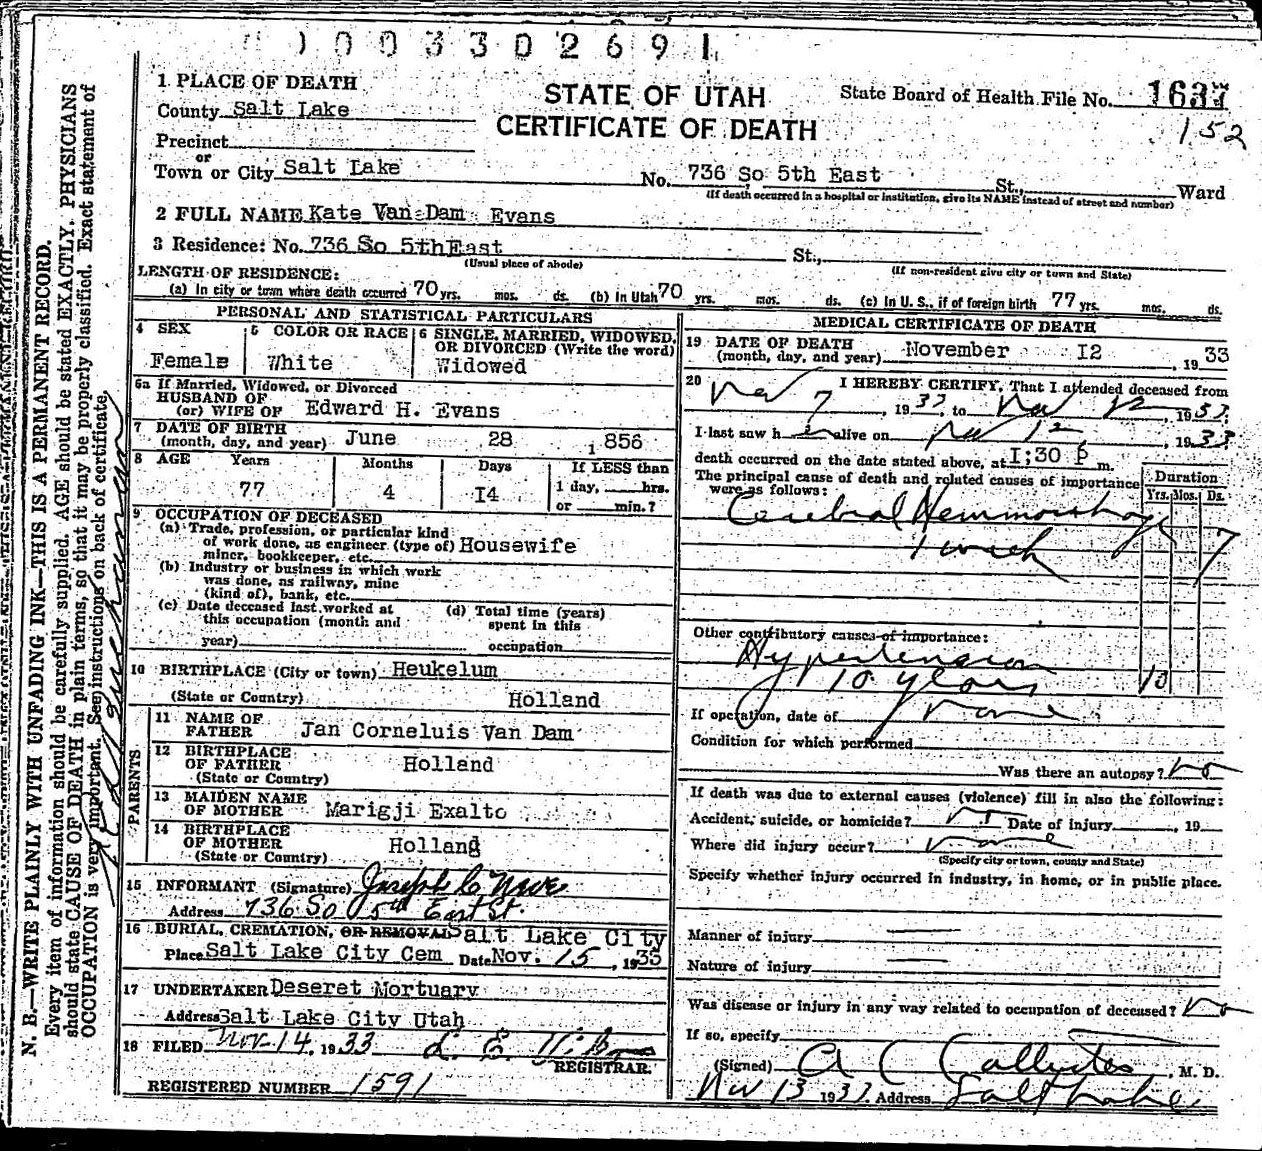 0003302691
1 PLACE OF DEATH
County Salt Lake
Precinct
or
Town or City Salt Lake
STATE OF UTAH
CERTIFICATE OF DEATH
State Board of Health File No. 1637
152
No. 736 So 5th East St., Ward
(If death occurred in a hospital or institution, give its NAME instead of street and number)
2 FULL NAME Kate Van Dam Evans
3 Residence: No. 736 So 5thEast St.,
(Usual place of abode) (If non-resident give city or town and State)
LENGTH OF RESIDENCE:
(a) In city or town where death occurred 70 yrs. mos. ds. (b) In Utah 70 yrs. mos. ds. (c) In U. S., if of foreign birth 77 yrs. mos. ds.
PERSONAL AND STATISTICAL PARTICULARS
4 SEX 5 COLOR OR RACE 6 SINGLE, MARRIED, WIDOWED, OR DIVORCED (Write the word)
Female White Widowed
6a If Married, Widowed, or Divorced
HUSBAND OF
(or) WIFE OF Edward H. Evans
7 DATE OF BIRTH
(month, day, and year) June 28 1856
8 AGE Years Months Days If LESS than
77 4 I4 1 day, hrs.
or min.?
9 OCCUPATION OF DECEASED
(a) Trade, profession, or particular kind
of work done, as engineer (type of) Housewife
miner, bookkeeper, etc.
(b) Industry or business in which work
was done, as railway, mine
(kind of), bank, etc.
(c) Date deceased last worked at (d) Total time (years)
this occupation (month and spent in this
year) occupation
10 BIRTHPLACE (City or town) Heukelum
(State or Country) Holland
PARENTS
11 NAME OF
FATHER Jan Corneluis Van Dam
12 BIRTHPLACE
OF FATHER Holland
(State or Country)
13 MAIDEN NAME
OF MOTHER Marigji Exalto
14 BIRTHPLACE
OF MOTHER Holland
(State or Country)
15 INFORMANT (Signature) Joseph C
Address 736 So 5th East St.
16 BURIAL, CREMATION, OR REMOVAL Salt Lake City
Place Salt Lake City Cem Date Nov. 15, 1933
17 UNDERTAKER Deseret Mortuary
Address Salt Lake City Utah
18 FILED Nov 14, 1933
REGISTRAR.
REGISTERED NUMBER 1591
MEDICAL CERTIFICATE OF DEATH
19 DATE OF DEATH
(month, day, and year) November I2, 1933
20 I HEREBY CERTIFY, That I attended deceased from
Nov 7, 1933, to Nov 12 1933.
I last saw her alive on Nov 12, 1933
death occurred on the date stated above, at I;30 P m.
The principal cause of death and related causes of importance
were as follows:
Duration
Yrs. Mos. Ds.
Cerebral Hemmorrhage 7
1 week
Other contributory causes of importance:
Hypertension
10 years 10
If operation, date of none
Condition for which performed
Was there an autopsy? no
If death was due to external causes (violence) fill in also the following:
Accident, suicide, or homicide? Date of injury, 19
Where did injury occur? none
(Specify city or town, county and State)
Specify whether injury occurred in industry, in home, or in public place.
Manner of injury
Nature of injury
Was disease or injury in any way related to occupation of deceased? no
If so, specify
(Signed) A C, M. D.
Nov 13 1933. Address Salt Lake
N. B.—WRITE PLAINLY WITH UNFADING INK—THIS IS A PERMANENT RECORD.
Every item of information should be carefully supplied. AGE should be stated EXACTLY. PHYSICIANS
should state CAUSE OF DEATH in plain terms, so that it may be properly classified. Exact statement of
OCCUPATION is very important. See instructions on back of certificate.